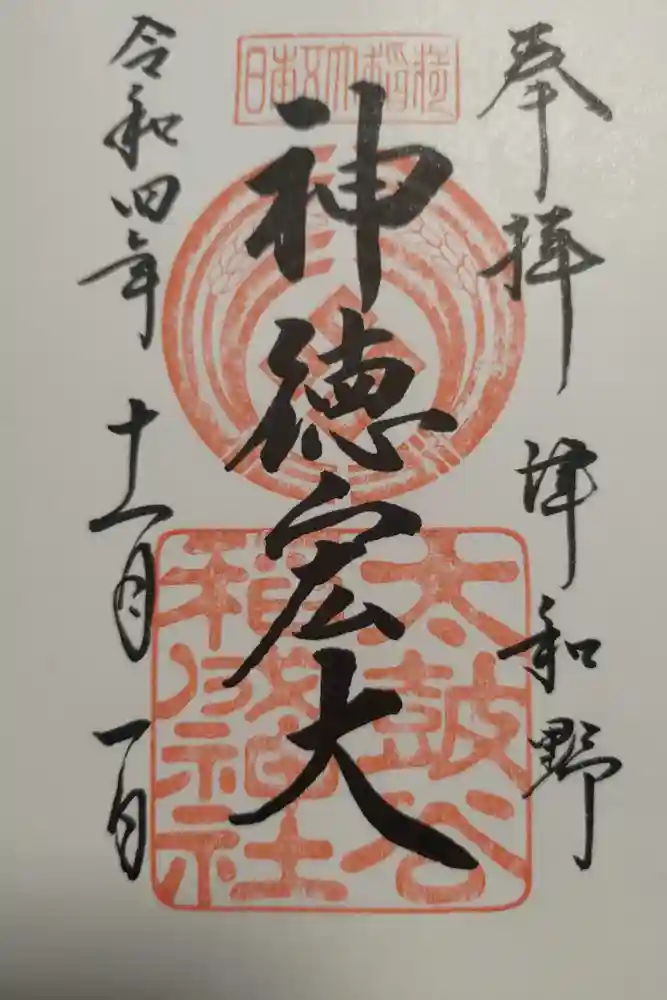 奉拝 津和野
日本五大稲荷
神徳宏大
太皷谷
稲成神社
令和四年 十一月 一日